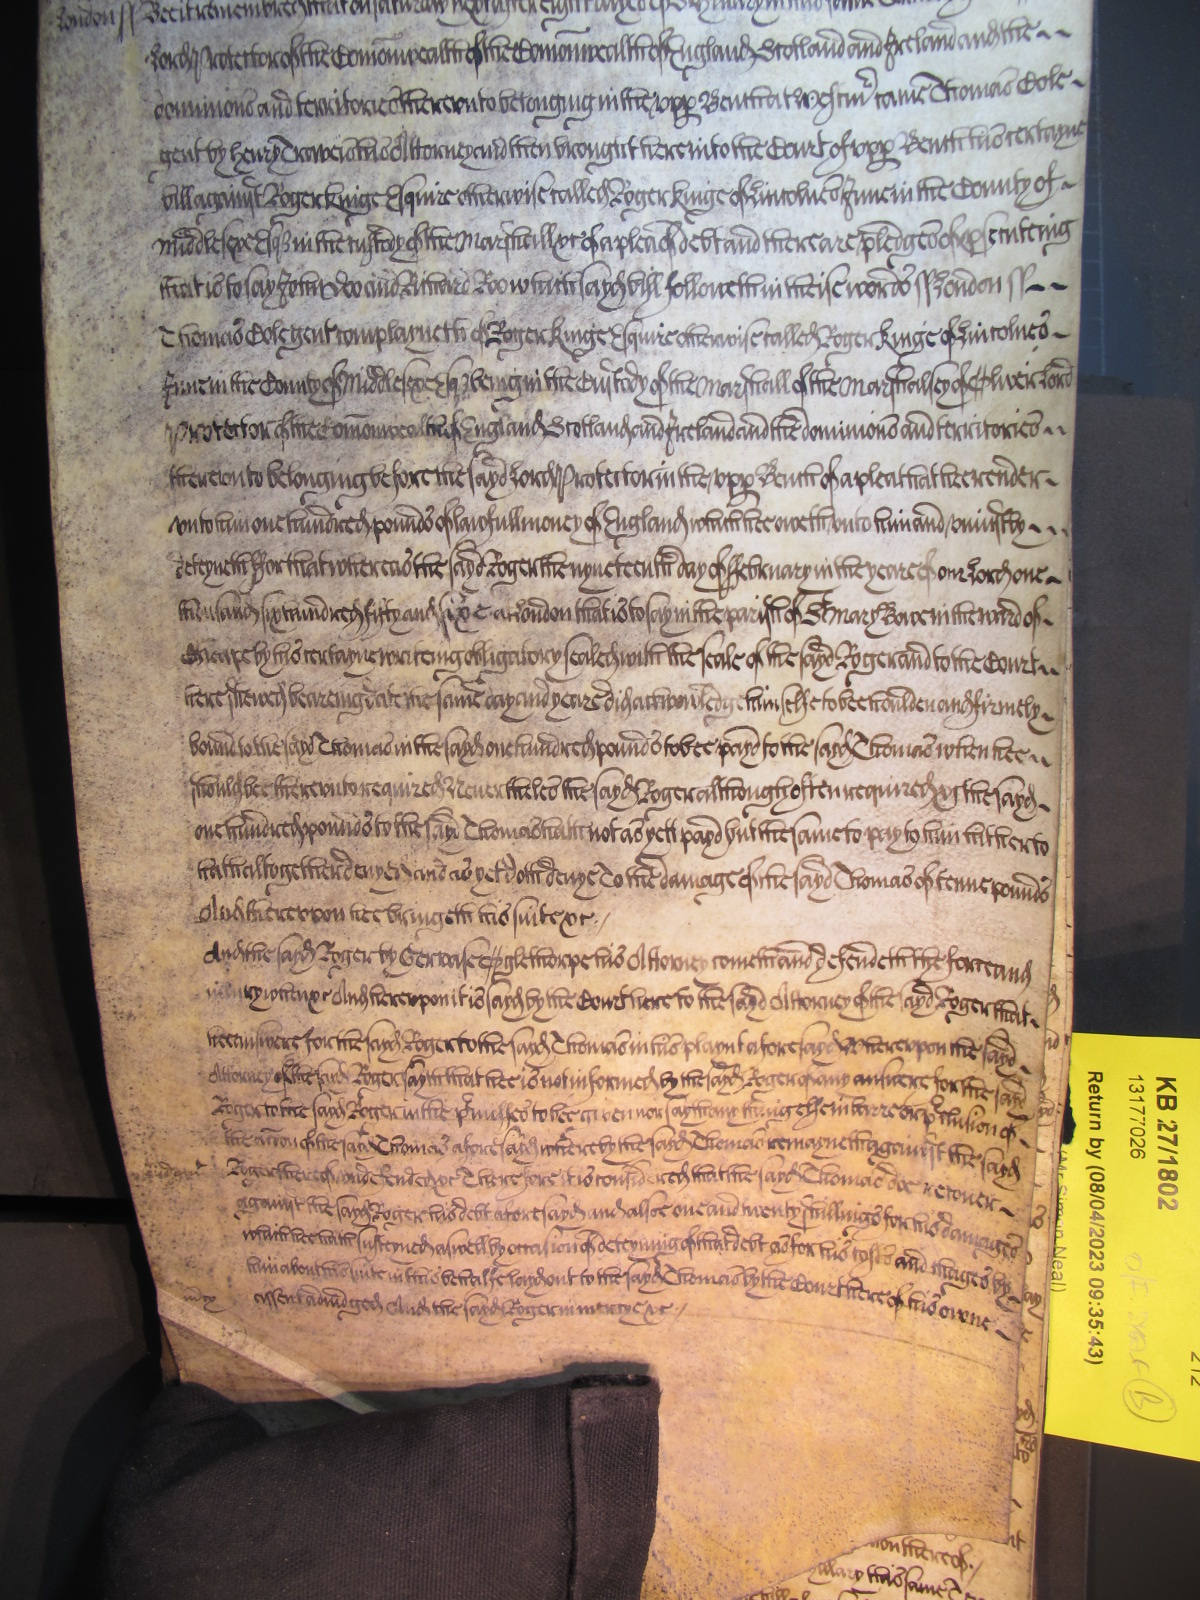 London ss Bee it remembred that on Saturday next after eight dayes of St Hillary in this same
Lord Protector of the Comonwealth of the Comonwealth of England Scotland and Ireland and the
dominions and territories thereunto belonging in the upp Bench at Westmr came Thomas Cole
gent by Henry Travers his Attorney and then brought here into the Court of upp Bench his certayne
bill against Roger Kinge Esquire otherwise called Roger Kinge of Lincolnes Inne in the County of
Middlesex Esqr in the custody of the Marshall &c of a plea of debt and there are pledges of prosecuteing
that is to say John Doo and Richard Roo which sayd bill followeth in theise words ss London ss
Thomas Cole gent complayneth of Roger Kinge Esquire otherwise called Roger Kinge of Lincolnes
Inne in the County of Middlesex Esqr being in the Custody of the Marshall of the Marshalsey of Oliver Lord
Protector of the Comonwealth of England Scotland and Ireland and the dominions and territories
thereunto belonging before the sayd Lord Protector in the upp Bench of a plea that hee render
unto him one hundred pounds of lawfull money of England which hee oweth unto him and uniustly
deteyneth ffor that whereas the sayd Roger the nyneteenth day of ffebruary in the yeare of our Lord one
thousand six hundred fifty and six &c at London that is to say in the parish of St Mary Bowe in the ward of
Cheape by his certayne writeing obligatory sealed with the seale of the sayd Roger and to the Court
here shewed beareing date the same day and yeare did acknowledge himselfe to bee houlden and firmely
bound to the sayd Thomas in the sayd one hundred pounds to bee payd to the sayd Thomas when hee
should bee thereunto required Neverthelesse the sayd Roger although often required &c the sayd
one hundred pounds to the sayd Thomas hath not as yett payd but the same to pay to him hitherto
hath altogether denyed and as yet doth denye To the damage of the sayd Thomas of tenne pounds
And thereupon hee bringeth his suite &c
And the sayd Roger by Gervase Oglethorpe his Attorney cometh and defendeth the force and
iniury when &c And thereupon it is sayd by the Court here to the sayd Attorney of the sayd Roger that
hee answere for the sayd Roger to the sayd Thomas in his playnt aforesayd Whereupon the sayd
Attorney of the sayd Roger sayth that hee is not informed by the sayd Roger of any answere for the sayd
Roger to the sayd Roger in the pmisses to bee given nor sayth any thing else in barre or pclusion of
the accon of the sayd Thomas aforesayd whereby the sayd Thomas remayneth against the sayd
Roger thereof undefended &c Therefore it is considered that the sayd Thomas doe recover
against the sayd Roger his debt aforesayd and alsoe one and twenty shillings for his damages
which hee hath susteyned aswell by occasion of deteyning of that debt as for his costs and charges by
him about his suite in this behalfe layd out to the sayd Thomas by the Court here of his owne
assent adiudged And the sayd Roger in mercye &c
KB 27/1802
13177026
Return by (08/04/2023 09:35:43)
(Mr Simon Neal)
212